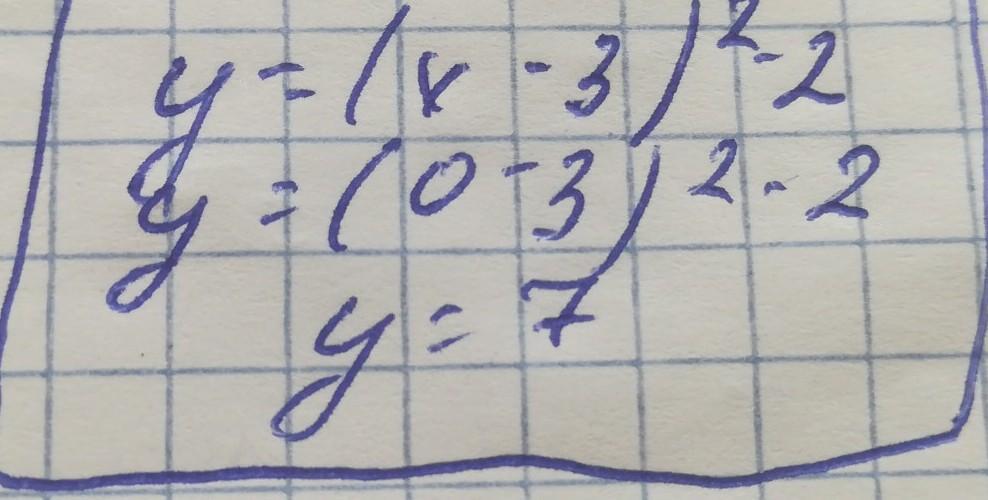 y = (x - 3)² - 2
y = (0 - 3)² - 2
y = 7